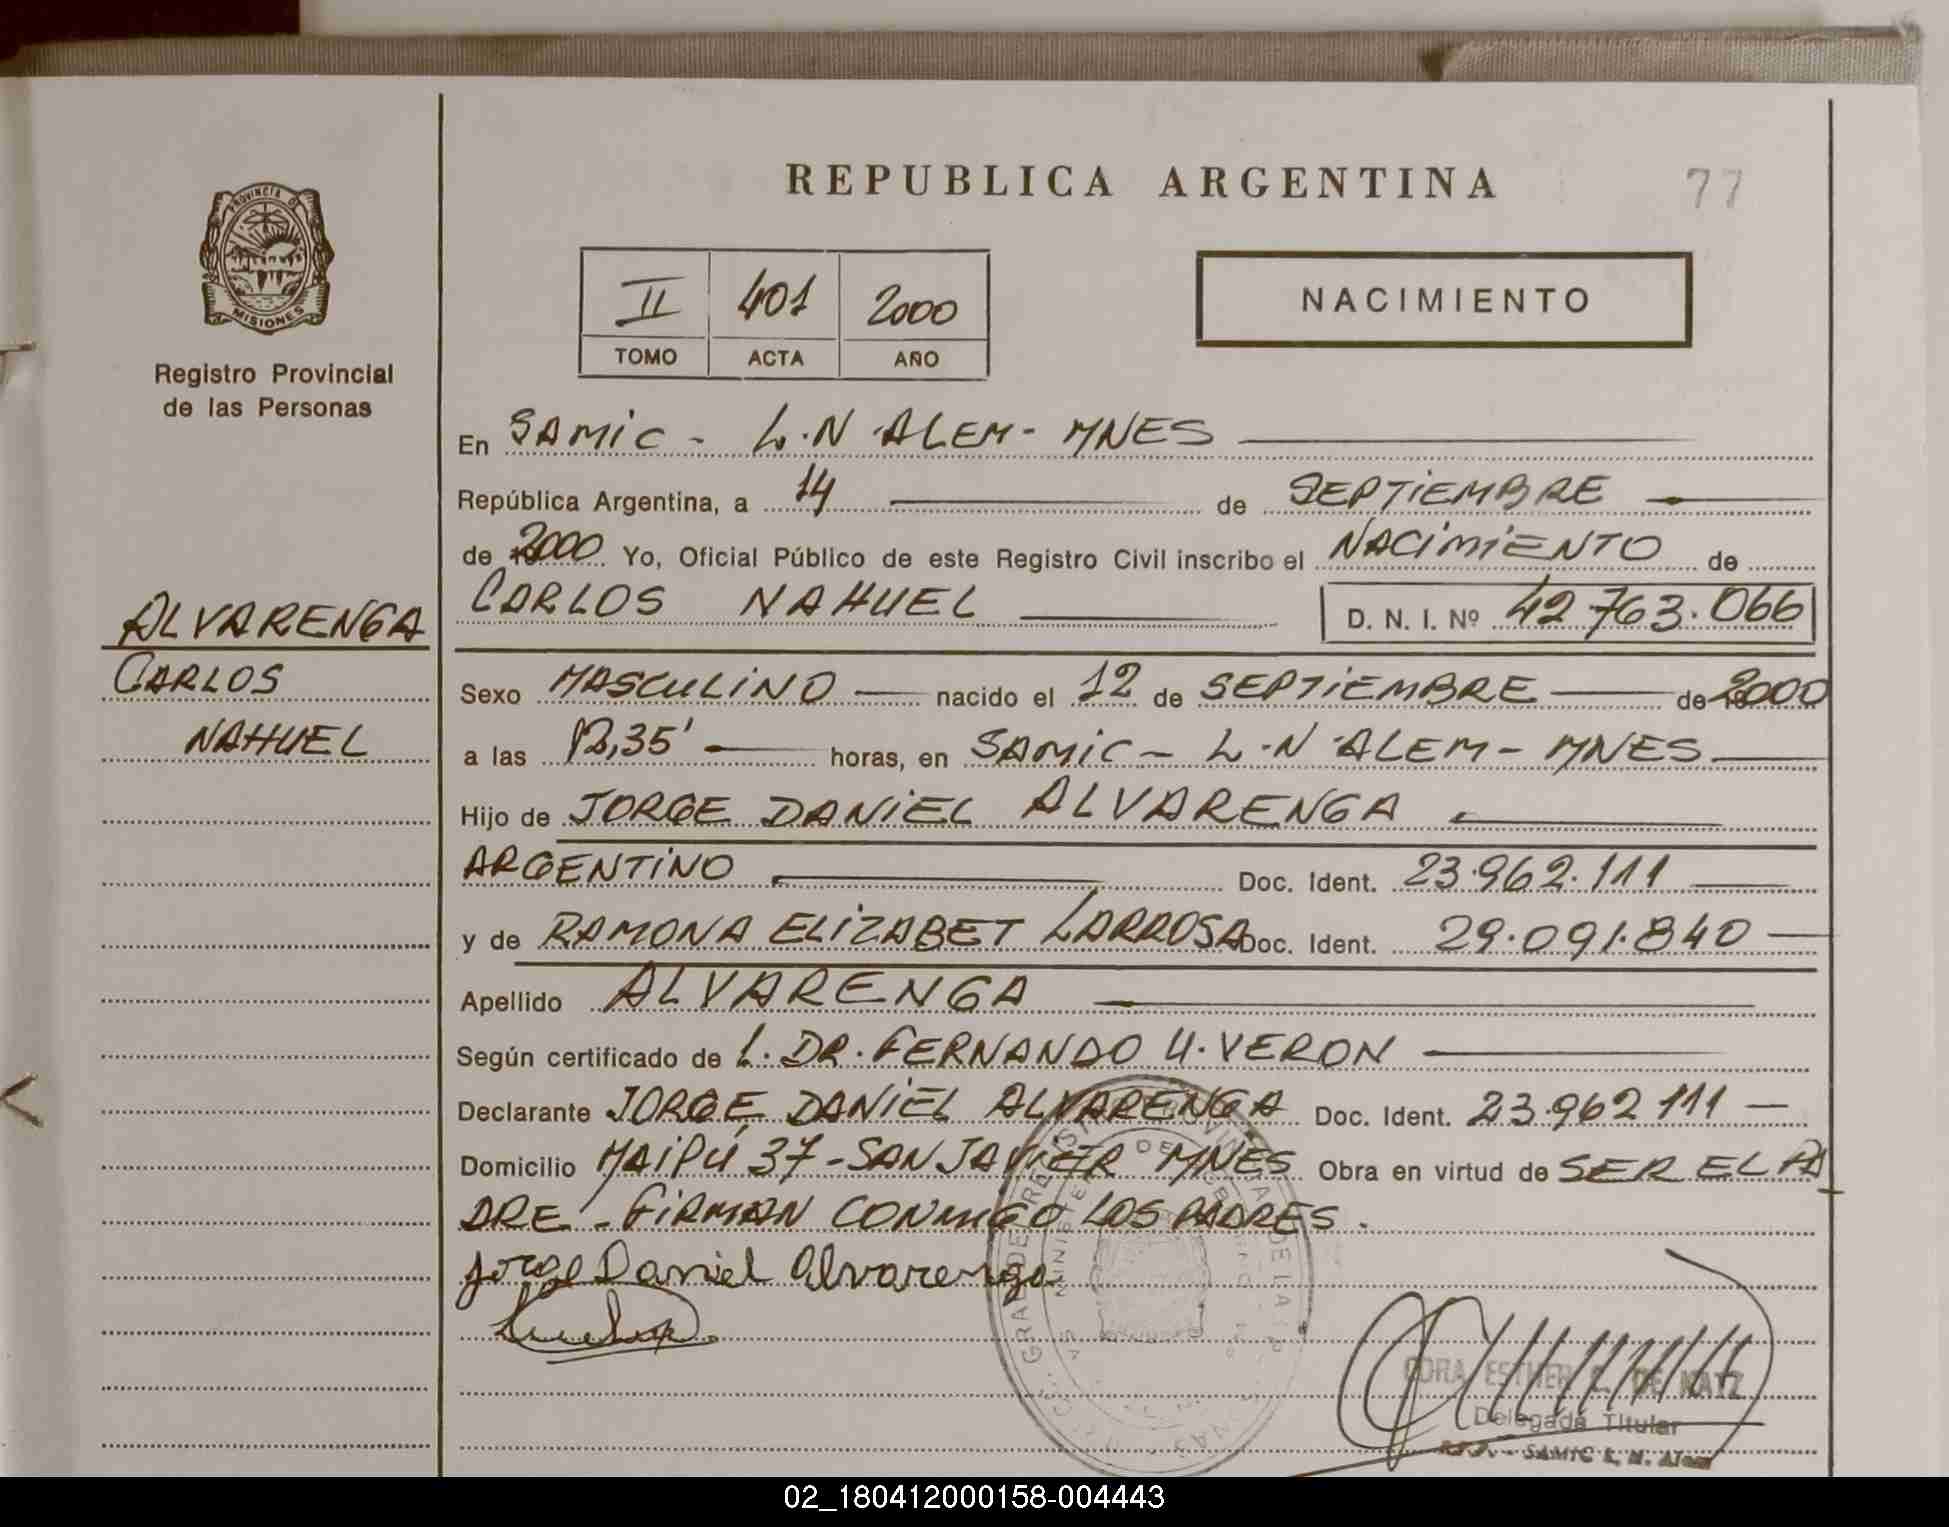 REPUBLICA ARGENTINA
77
PROVINCIA DE
MISIONES
Registro Provincial
de las Personas
II 401 2000
TOMO ACTA AÑO
NACIMIENTO
En SAMIC - L.N.ALEM - MNES
República Argentina, a 14 de SEPTIEMBRE
de 2000 Yo, Oficial Público de este Registro Civil inscribo el NACIMIENTO de
CARLOS NAHUEL D. N. I. Nº 42.763.066
ALVARENGA
CARLOS
NAHUEL
Sexo MASCULINO nacido el 12 de SEPTIEMBRE de 2000
a las 12,35' horas, en SAMIC - L.N.ALEM - MNES
Hijo de JORGE DANIEL ALVARENGA
ARGENTINO Doc. Ident. 23.962.111
y de RAMONA ELIZABET LARROSA Doc. Ident. 29.091.840
Apellido ALVARENGA
Según certificado de L. DR. FERNANDO U. VERON
Declarante JORGE DANIEL ALVARENGA Doc. Ident. 23.962 111
Domicilio MAIPÚ 37 - SAN JAVIER MNES Obra en virtud de SER EL PA
DRE - FIRMAN CONMIGO LOS PADRES.
Jorge Daniel Alvarenga
CORA ESTHER C. DE KATZ
Delegada Titular
SAMIC L. N. Alem
02_180412000158-004443